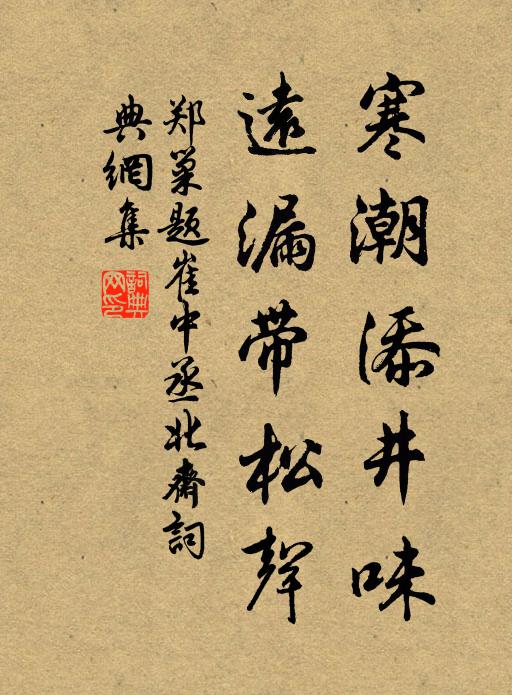 寒潮添井味
遠漏帶松聲
郑巢题崔中丞北齋詞
典網集
詞典网印